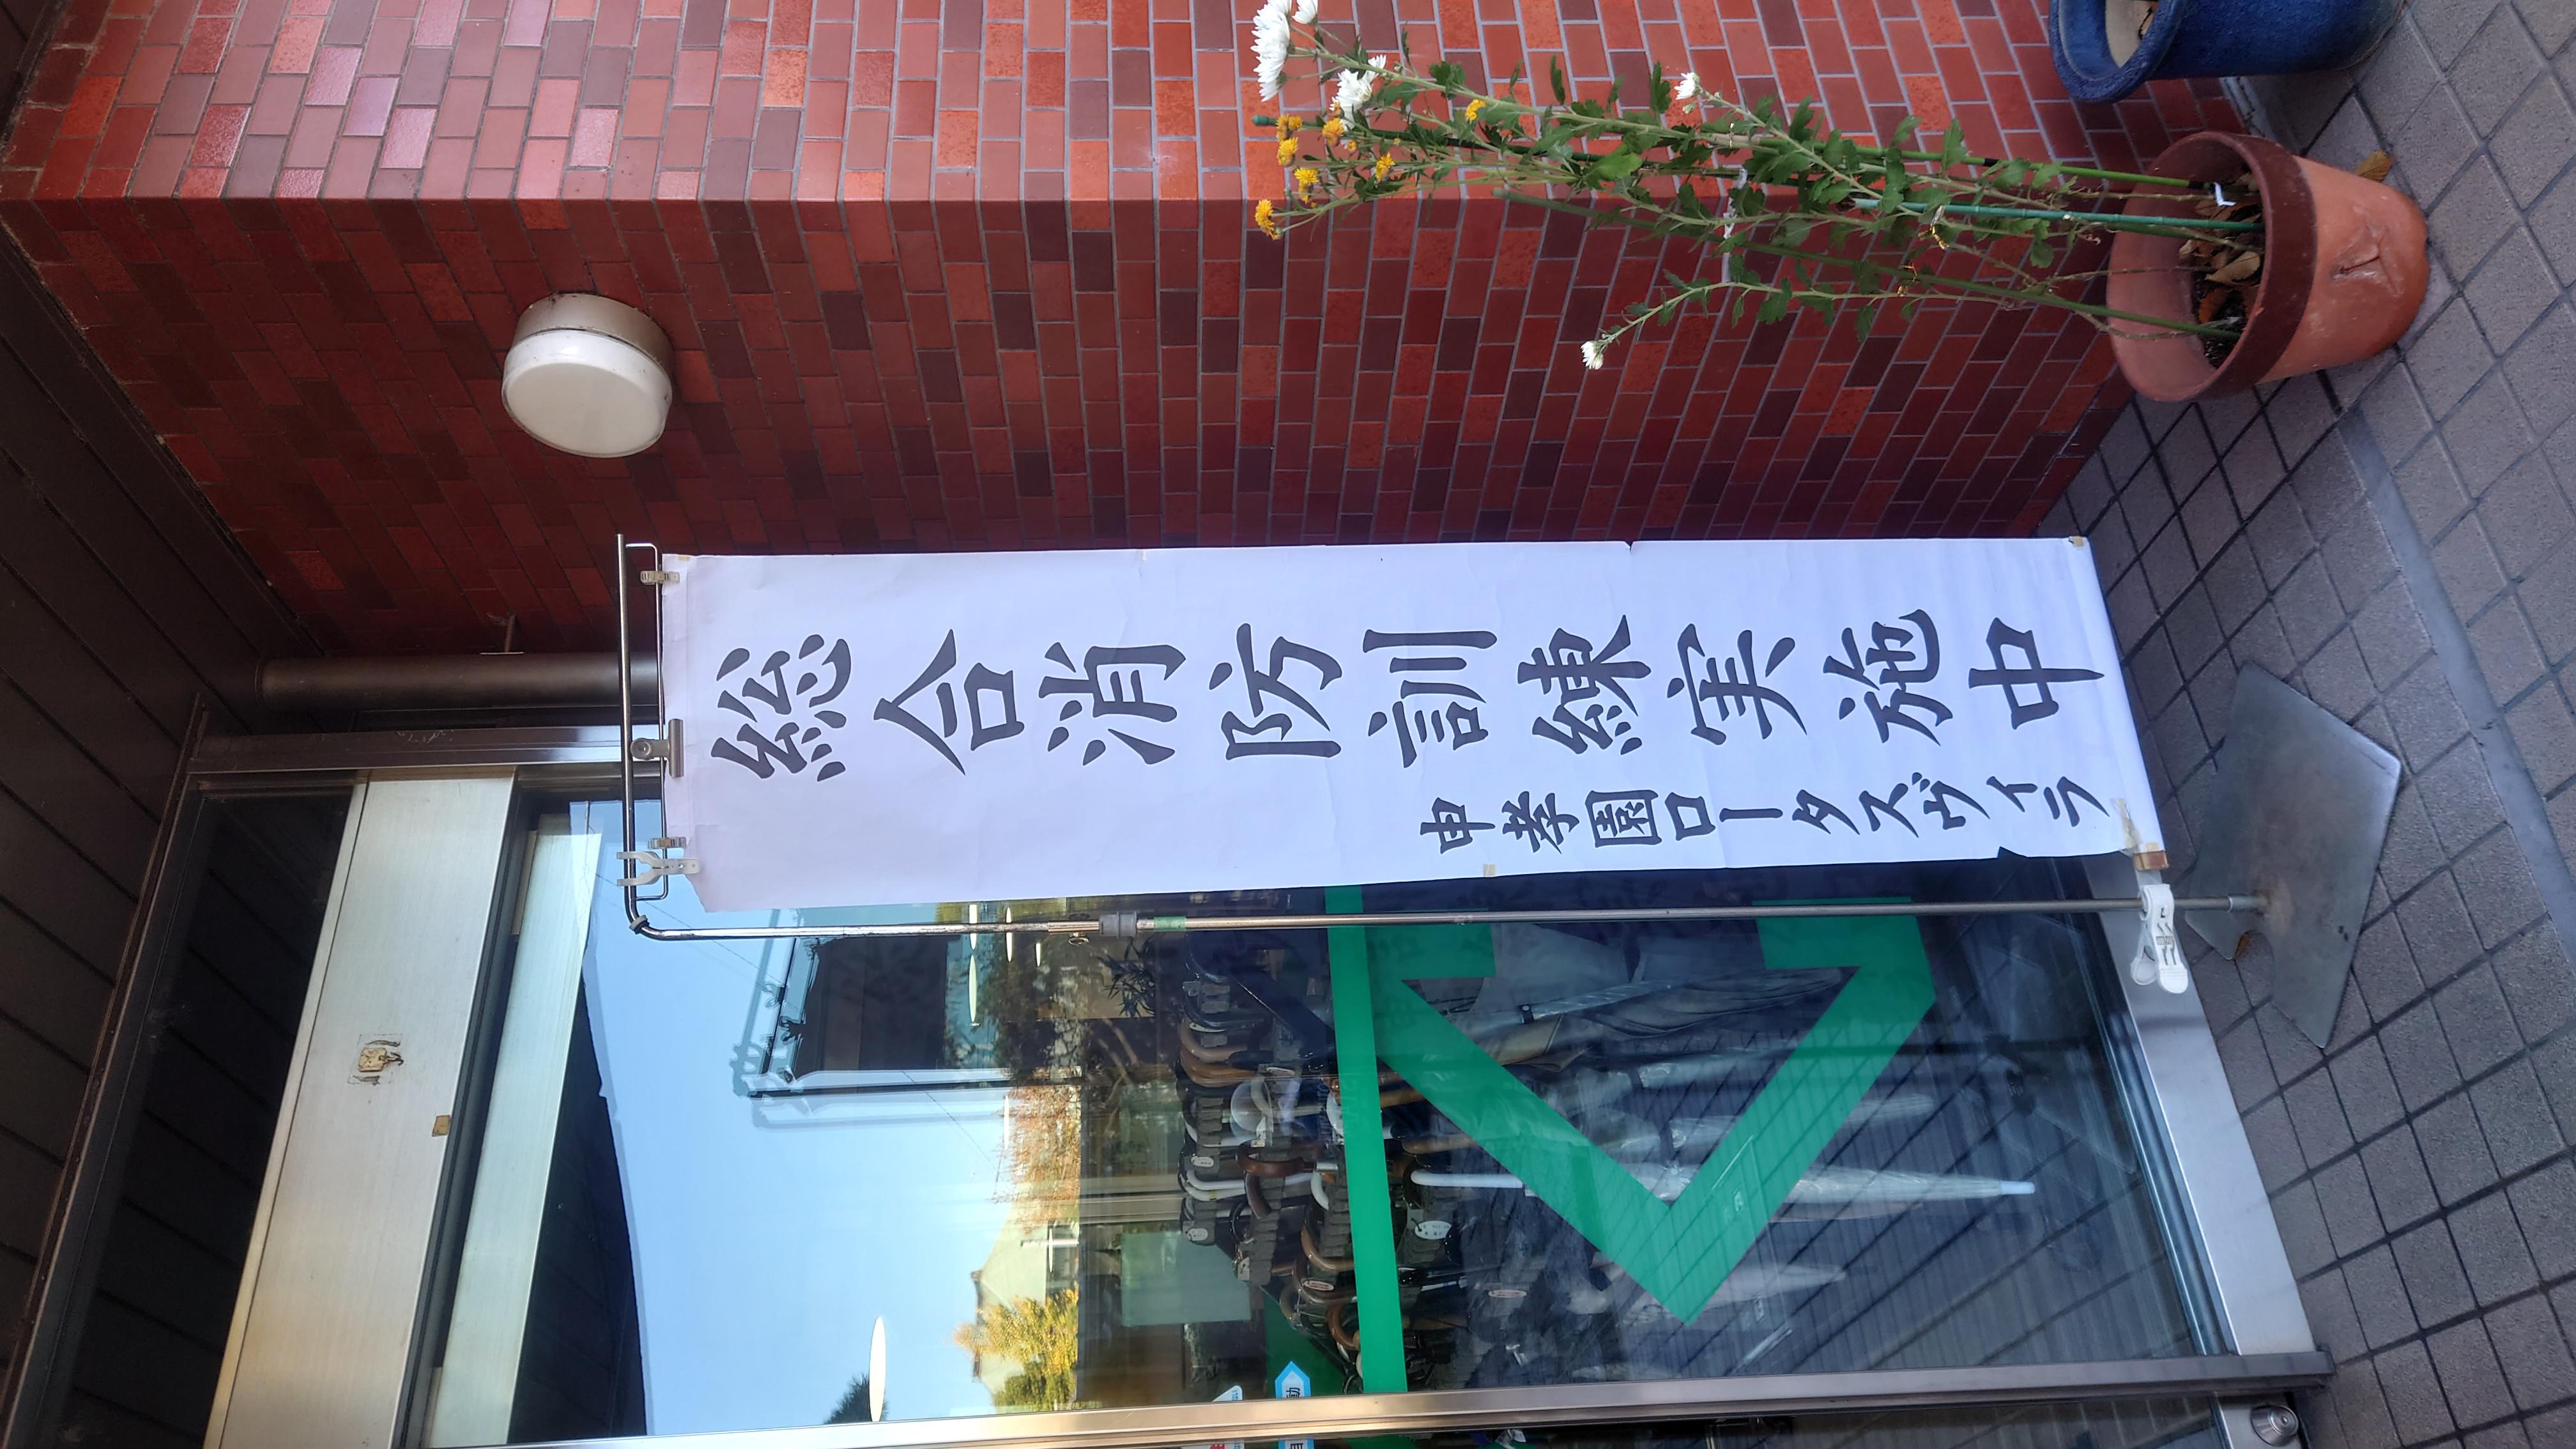 総合消防訓練実施中
申孝園ロータスヴィラ